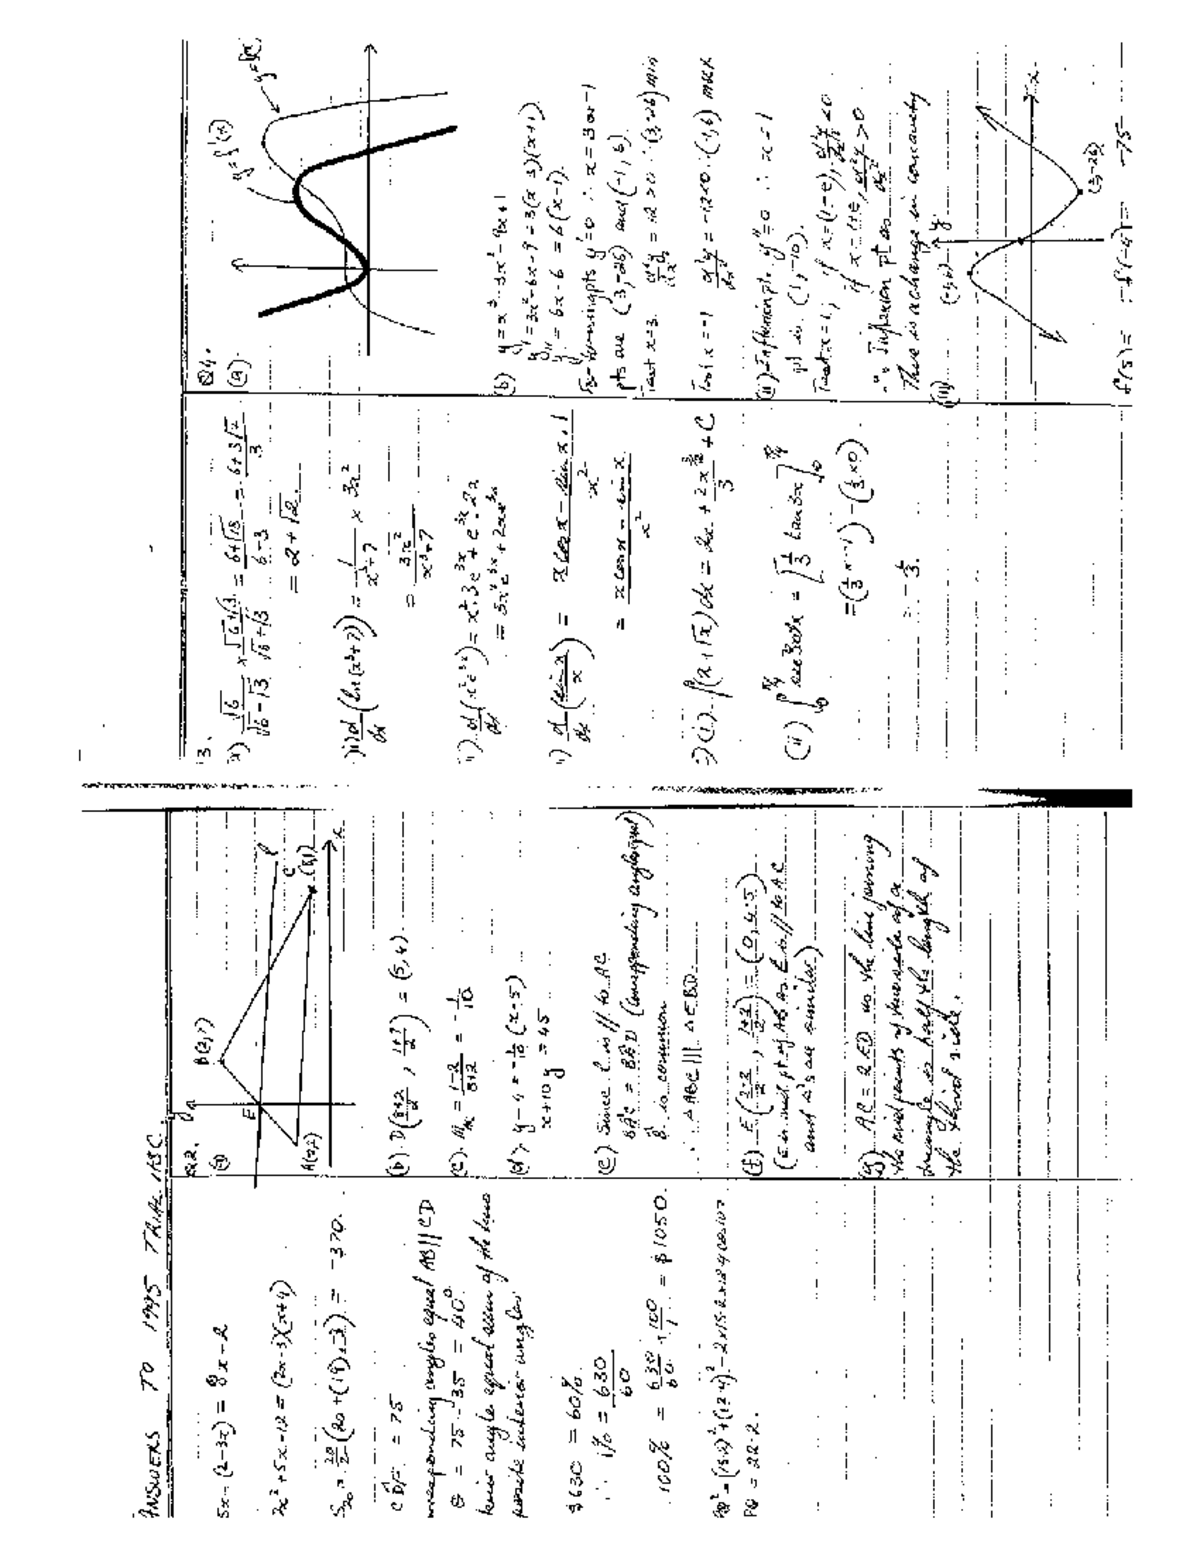 ANSWERS TO 1995 TRIAL HSC.
5x-(2-3x) = 8x-2
2x²+5x-12 = (2x-3)(x+4)
S₂₀ = 20/2 (20+(19)×-3) = -370.
CDF = 75
corresponding angles equal AB || CD
θ = 75-35 = 40°
terior angle equal sum of the two
posite interior angles.
$630 = 60%
∴ 1% = 630/60
100% = 630/60 × 100/1 = $1050.
PQ² = (15.2)²+(12.4)²-2×15.2×12.4 cos107
PQ = 22.2.
Q2.
(a)
y
B(2,7)
E
A(-2,2)
l
C (8,1)
x
(b) D(8+2/2, 1+7/2) = (5,4)
(c) M_AC = 1-2/8+2 = -1/10
(d) y-4 = -1/10 (x-5)
x+10y = 45
(e) Since l is // to AC
BAC = BED (corresponding angles equal)
B is common
∴ ΔABC ||| ΔEBD.
(f) E(2-2/2, 7+2/2) = (0, 4.5)
(E is mid pt of AB as E is // to AC
and Δ's are similar)
(g) AC = 2ED as the line joining
the mid points of two sides of a
triangle is half the length of
the third side.
3.
a) √6/√6-√3 × √6+√3/√6+√3 = 6+√18/6-3 = 6+3√2/3
= 2+√2
)ii) d/dx (ln(x³+7)) = 1/x³+7 × 3x²
= 3x²/x³+7
ii) d/dx (x²e³ˣ) = x².3e³ˣ + e³ˣ.2x
= 3x²e³ˣ + 2xe³ˣ
i) d/dx (sin x/x) = x cos x - sin x . 1/x²
= x cos x - sin x/x²
c) (i) ∫(2+√x) dx = 2x + 2x^3/2/3 + C
(ii) ∫ sec²3x dx = [1/3 tan 3x]
= (1/3 × -1) - (1/3 × 0)
= -1/3.
Q4.
(a)
y = f'(x)
(b) y = x³-3x²-9x+1
y' = 3x²-6x-9 = 3(x-3)(x+1)
y'' = 6x-6 = 6(x-1).
For turning pts y'=0 ∴ x = 3 or -1
pts are (3,-26) and (-1,6).
Test x=3. d²y/dx² = 12 > 0 ∴ (3,-26) min
Test x=-1 d²y/dx² = -12 < 0 ∴ (-1,6) max
(ii) Inflexion pts. y''=0 ∴ x=1
pt is (1,-10).
Test x=1, if x=(1-ε), d²y/dx² < 0
if x = 1+ε, d²y/dx² > 0
∴ Inflexion pt as
There is a change in concavity
(iii)
y
(-1,6)
x
(3,-26)
f(5) = -f(-4) = -75